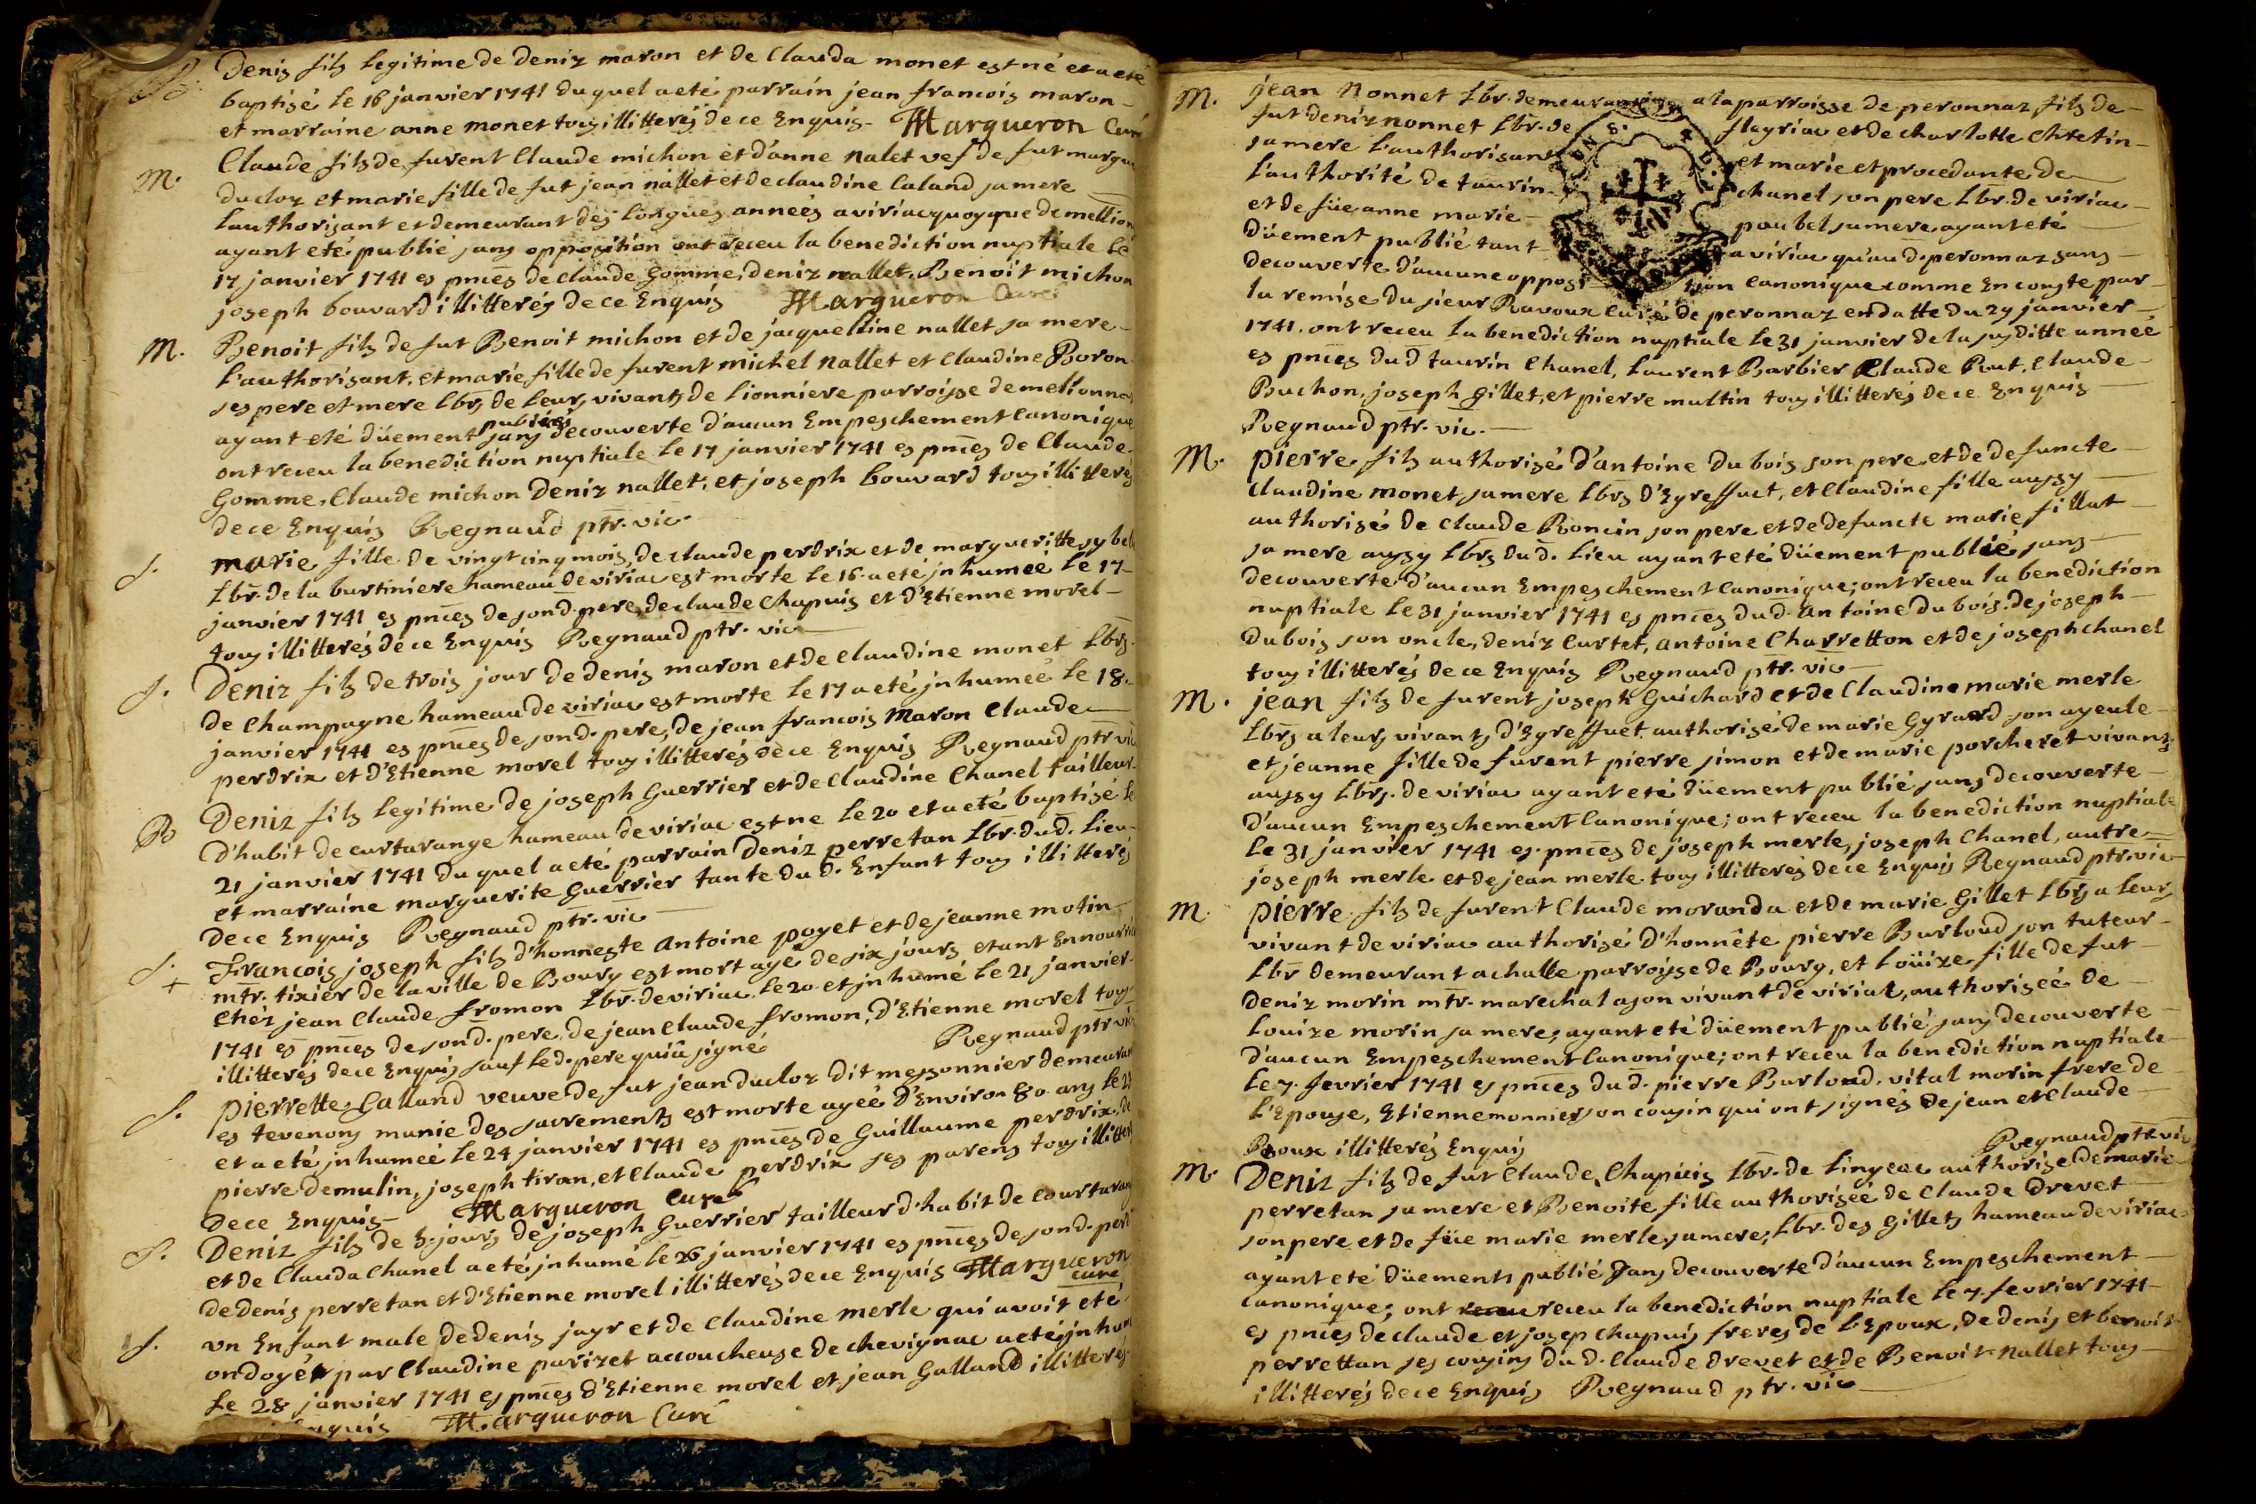 B. Denis fils legitime de Deniz maron et de Clauda monet est né et a eté
baptisé le 16 janvier 1741 du quel a eté parrain jean francois maron
et marraine anne monet tous illitterés de ce Enquis. Margueron Curé
M. Claude fils de furent Claude michon et d'anne nalet vef de fut
ducloz et marie fille de fut jean nallet et de claudine Caland sa mere
l'authorisant et demeurant des longues années a viriac quoyque de
ayant eté publié sans opposition ont receu la benediction nuptiale le
17 janvier 1741 es pnces de claude Gomme, deniz nallet, Benoit michon
joseph bouvard illitterés de ce Enquis Margueron Curé
M. Benoit fils de fut Benoit michon et de jacqueline nallet sa mere
l'authorisant, et marie fille de furent michel nallet et Claudine Boron
ses pere et mere Lbrs de leurs vivants de lionniere parroisse de
publiés
ayant eté düement sans decouverte d'aucun Empeschement Canonique
ont receu la benediction nuptiale le 17 janvier 1741 es pnces de Claude
Gomme, Claude michon Deniz nallet, et joseph bouvard tous illitterés
de ce Enquis Regnaud ptr. vic.
S. marie fille de vingt cinq mois, de claude perdrix et de margueritte
Lbr. de la burtiniere hameau de viriac est morte le 16 a eté jnhumeé le 17
janvier 1741 es pnces de son d. pere, de claude Chapuis et d'Etienne morel
tous illitterés de ce Enquis Regnaud ptr. vic
S. Deniz fils de trois jour de denis maron et de claudine monet Lbrs.
de Champagne hameau de viriac est morte le 17 a eté jnhumeé le 18.
janvier 1741 es pnces de son d. pere, de jean francois maron Claude
perdrix et d'Etienne morel tous illitterés de ce Enquis Regnaud ptr vic
B Deniz fils legitime de joseph Guerrier et de Claudine Chanel tailleur
d'habit de curtarange hameau de viriac est ne le 20 et a eté baptisé le
21 janvier 1741 du quel a eté parrain Deniz perretan Lbr. du d. lieu
et marraine marguerite Guerrier tante du d. Enfant tous illitterés
de ce Enquis Regnaud ptr. vic
S. + Francois joseph fils d'honneste Antoine poyet et de jeanne motin
mtr. tixier de la ville de Bourg est mort agé de six jours etant Ennourrice
Chéz jean Claude fromon Lbr. de viriac le 20 et jnhumé le 21 janvier
1741 es pnces de son d. pere, de jean Claude fromon, d'Etienne morel tous
illitterés de ce Enquis sauf le d. pere qui a signé Regnaud ptr vic
S. pierrette Calland veuve de fut jean ducloz dit messonnier demeurant
es tevenons munie des sacrements est morte ageé d'Environ 80 ans le
et a eté jnhumeé le 24 janvier 1741 es pnces de Guillaume perdrix, de
pierre demulin, joseph tiran, et Claude perdrix ses parens tous illitterés
de ce Enquis Margueron Curé
S. Deniz fils de 8. jours de joseph Guerrier tailleur d'habit de Courtarange
et de Clauda Chanel a eté jnhumé le 26 janvier 1741 es pnces de son d. pere
de denis perretan et d'Etienne morel illitterés de ce Enquis Margueron
curé
S. un Enfant male de denis jayr et de Claudine merle qui avoit eté
ondoyé par Claudine parizet accoucheuse de chevignac a eté jnhumé
le 28 janvier 1741 es pnces d'Etienne morel et jean Galland illitterés
Enquis Margueron Curé
M. jean nonnet Lbr. demeurant a la parroisse de peronnaz fils de
fut deniz nonnet Lbr. de fleyriac et de charlotte Chretin
sa mere l'authorisant et marie et procedante de
l'authorité de taurin chanel son pere Lbr. de viriac
et de füe anne marie poubel sa mere ayant eté
düement publié tant a viriac qu'au d. peronnaz sans
decouverte d'aucune opposi tion Canonique comme En conste par
la remise du sieur Ravoux curé de peronnaz en datte du 29 janvier
1741. ont receu la benediction nuptiale le 31 janvier de la susditte anneé
es pnces du d taurin Chanel, Laurent Barbier Claude Put, Claude
Buchon, joseph Gillet, et pierre multin tous illitterés de ce Enquis
Regnaud ptr. vic.
M. pierre fils authorisé d'antoine du bois son pere et de defuncte
claudine monet sa mere Lbrs d'Egreffuet, et Claudine fille aussy
authorisé de Claude Roncin son pere et de defuncte marie fillat
sa mere aussy Lbrs du d. lieu ayant eté düement publié sans
decouverte d'aucun Empeschement Canonique; ont receu la benediction
nuptiale le 31 janvier 1741 es pnces du d. antoine du bois. de joseph
du bois son oncle, deniz Curtet, antoine Charretton et de joseph chanel
tous illitterés de ce Enquis Regnaud ptr. vic
M. jean fils de furent joseph Guichard et de Claudine marie merle
Lbrs a leurs vivants d'Egreffuet authorisé de marie Gyrard son ayeule
et jeanne fille de furent pierre simon et de marie porcheret vivants
aussy Lbrs. de viriac ayant eté düement publié sans decouverte
d'aucun Empeschement Canonique; ont receu la benediction nuptiale
le 31 janvier 1741 es pnces de joseph merle, joseph Chanel, autre
joseph merle et de jean merle tous illitterés de ce Enquis Regnaud ptr. vic
M. pierre fils de furent Claude moranda et de marie Gillet Lbrs a leurs
vivant de viriac authorisé d'honnête pierre Burloud son tuteur
Lbr demeurant a challe parroisse de Bourg, et Loüize fille de fut
Deniz morin mtr. marechal a son vivant de viriat, authoriseé de
Louize morin sa mere; ayant eté düement publié sans decouverte
d'aucun Empeschement Canonique; ont receu la benediction nuptiale
le 7. fevrier 1741 es pnces du d. pierre Burloud, vital morin frere de
l'Epouse, Etienne monnier son cousin qui ont signés de jean et Claude
Roux illitterés Enquis Regnaud ptr vic
M. Deniz fils de fut Claude Chapuis Lbr. de lingeac authorisé de marie
perretan sa mere et Benoite fille authoriseé de Claude Drevet
son pere et de füe marie merle, sa mere, Lbr. des Gillets hameau de viriac
ayant eté düements publié sans decouverte d'aucun Empeschement
Canonique; ont receu la benediction nuptiale le 7. fevrier 1741
es pnces de claude et josep chapuis freres de l'Epoux, de denis et benoit
perrettan ses cousins du d. Claude drevet et de Benoit nallet tous
illitterés de ce Enquis Regnaud ptr. vic